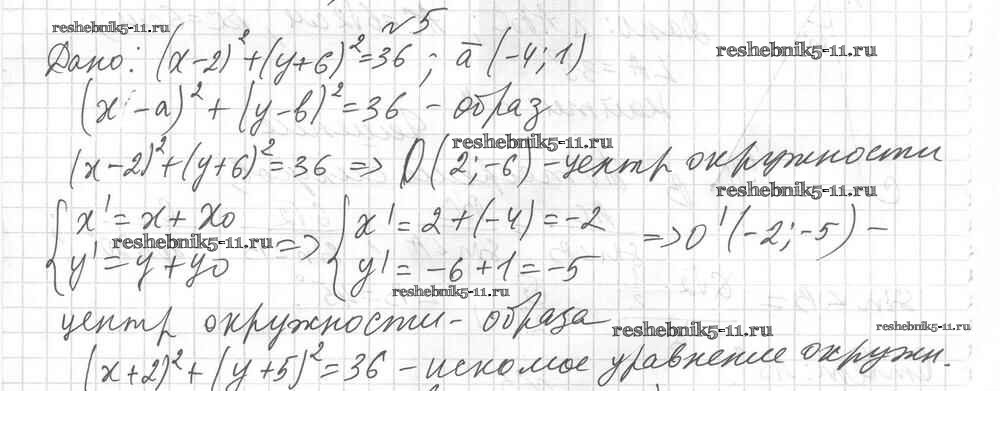 №5
reshebnik5-11.ru
Дано: (x-2)²+(y+6)²=36; ā (-4; 1)
reshebnik5-11.ru
(x-a)²+(y-в)²=36 - образ
reshebnik5-11.ru
(x-2)²+(y+6)²=36 => O(2; -6) - центр окружности
reshebnik5-11.ru
{ x' = x + x0 { x' = 2 + (-4) = -2
reshebnik5-11.ru
{ y' = y + y0 => { y' = -6 + 1 = -5 => O' (-2; -5) -
reshebnik5-11.ru
центр окружности - образа
reshebnik5-11.ru
reshebnik5-11.ru
(x+2)²+(y+5)²=36 - искомое уравнение окружн.